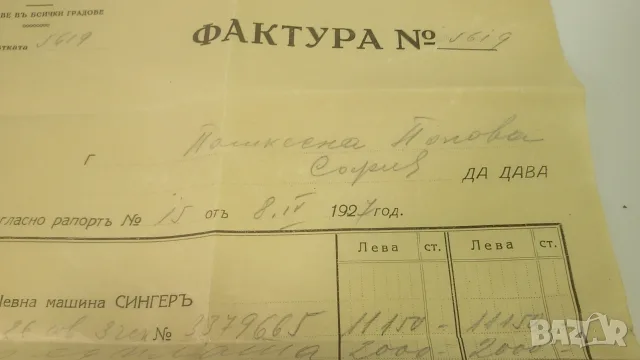 ВЕ ВЪ ВСИЧКИ ГРАДОВЕ
тката 5619
ФАКТУРА № 5619
Г Поликсена Попова
София ДА ДАВА
гласно рапортъ № 15 отъ 8.IV 1927 год.
Лева ст. Лева ст.
евна машина СИНГЕРЪ
№ 3379665 11150 - 11150
2000 - 2000
BAZAR.BG